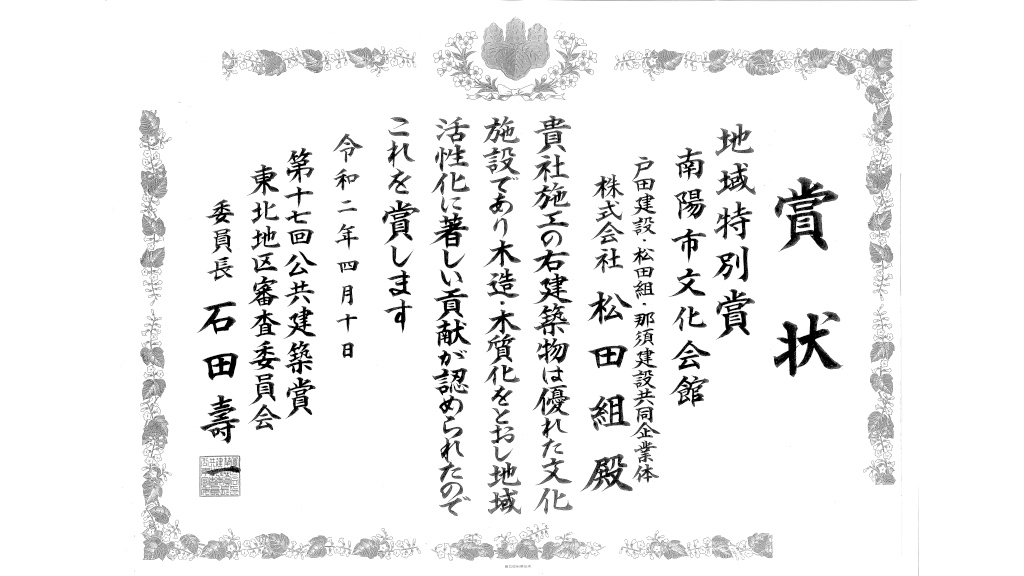 賞状
地域特別賞
南陽市文化会館
戸田建設・松田組・那須建設共同企業体
株式会社 松田組殿
貴社施工の右建築物は優れた文化
施設であり木造・木質化をとおし地域
活性化に著しい貢献が認められたので
これを賞します
令和二年四月十日
第十七回公共建築賞
東北地区審査委員会
委員長 石田壽一